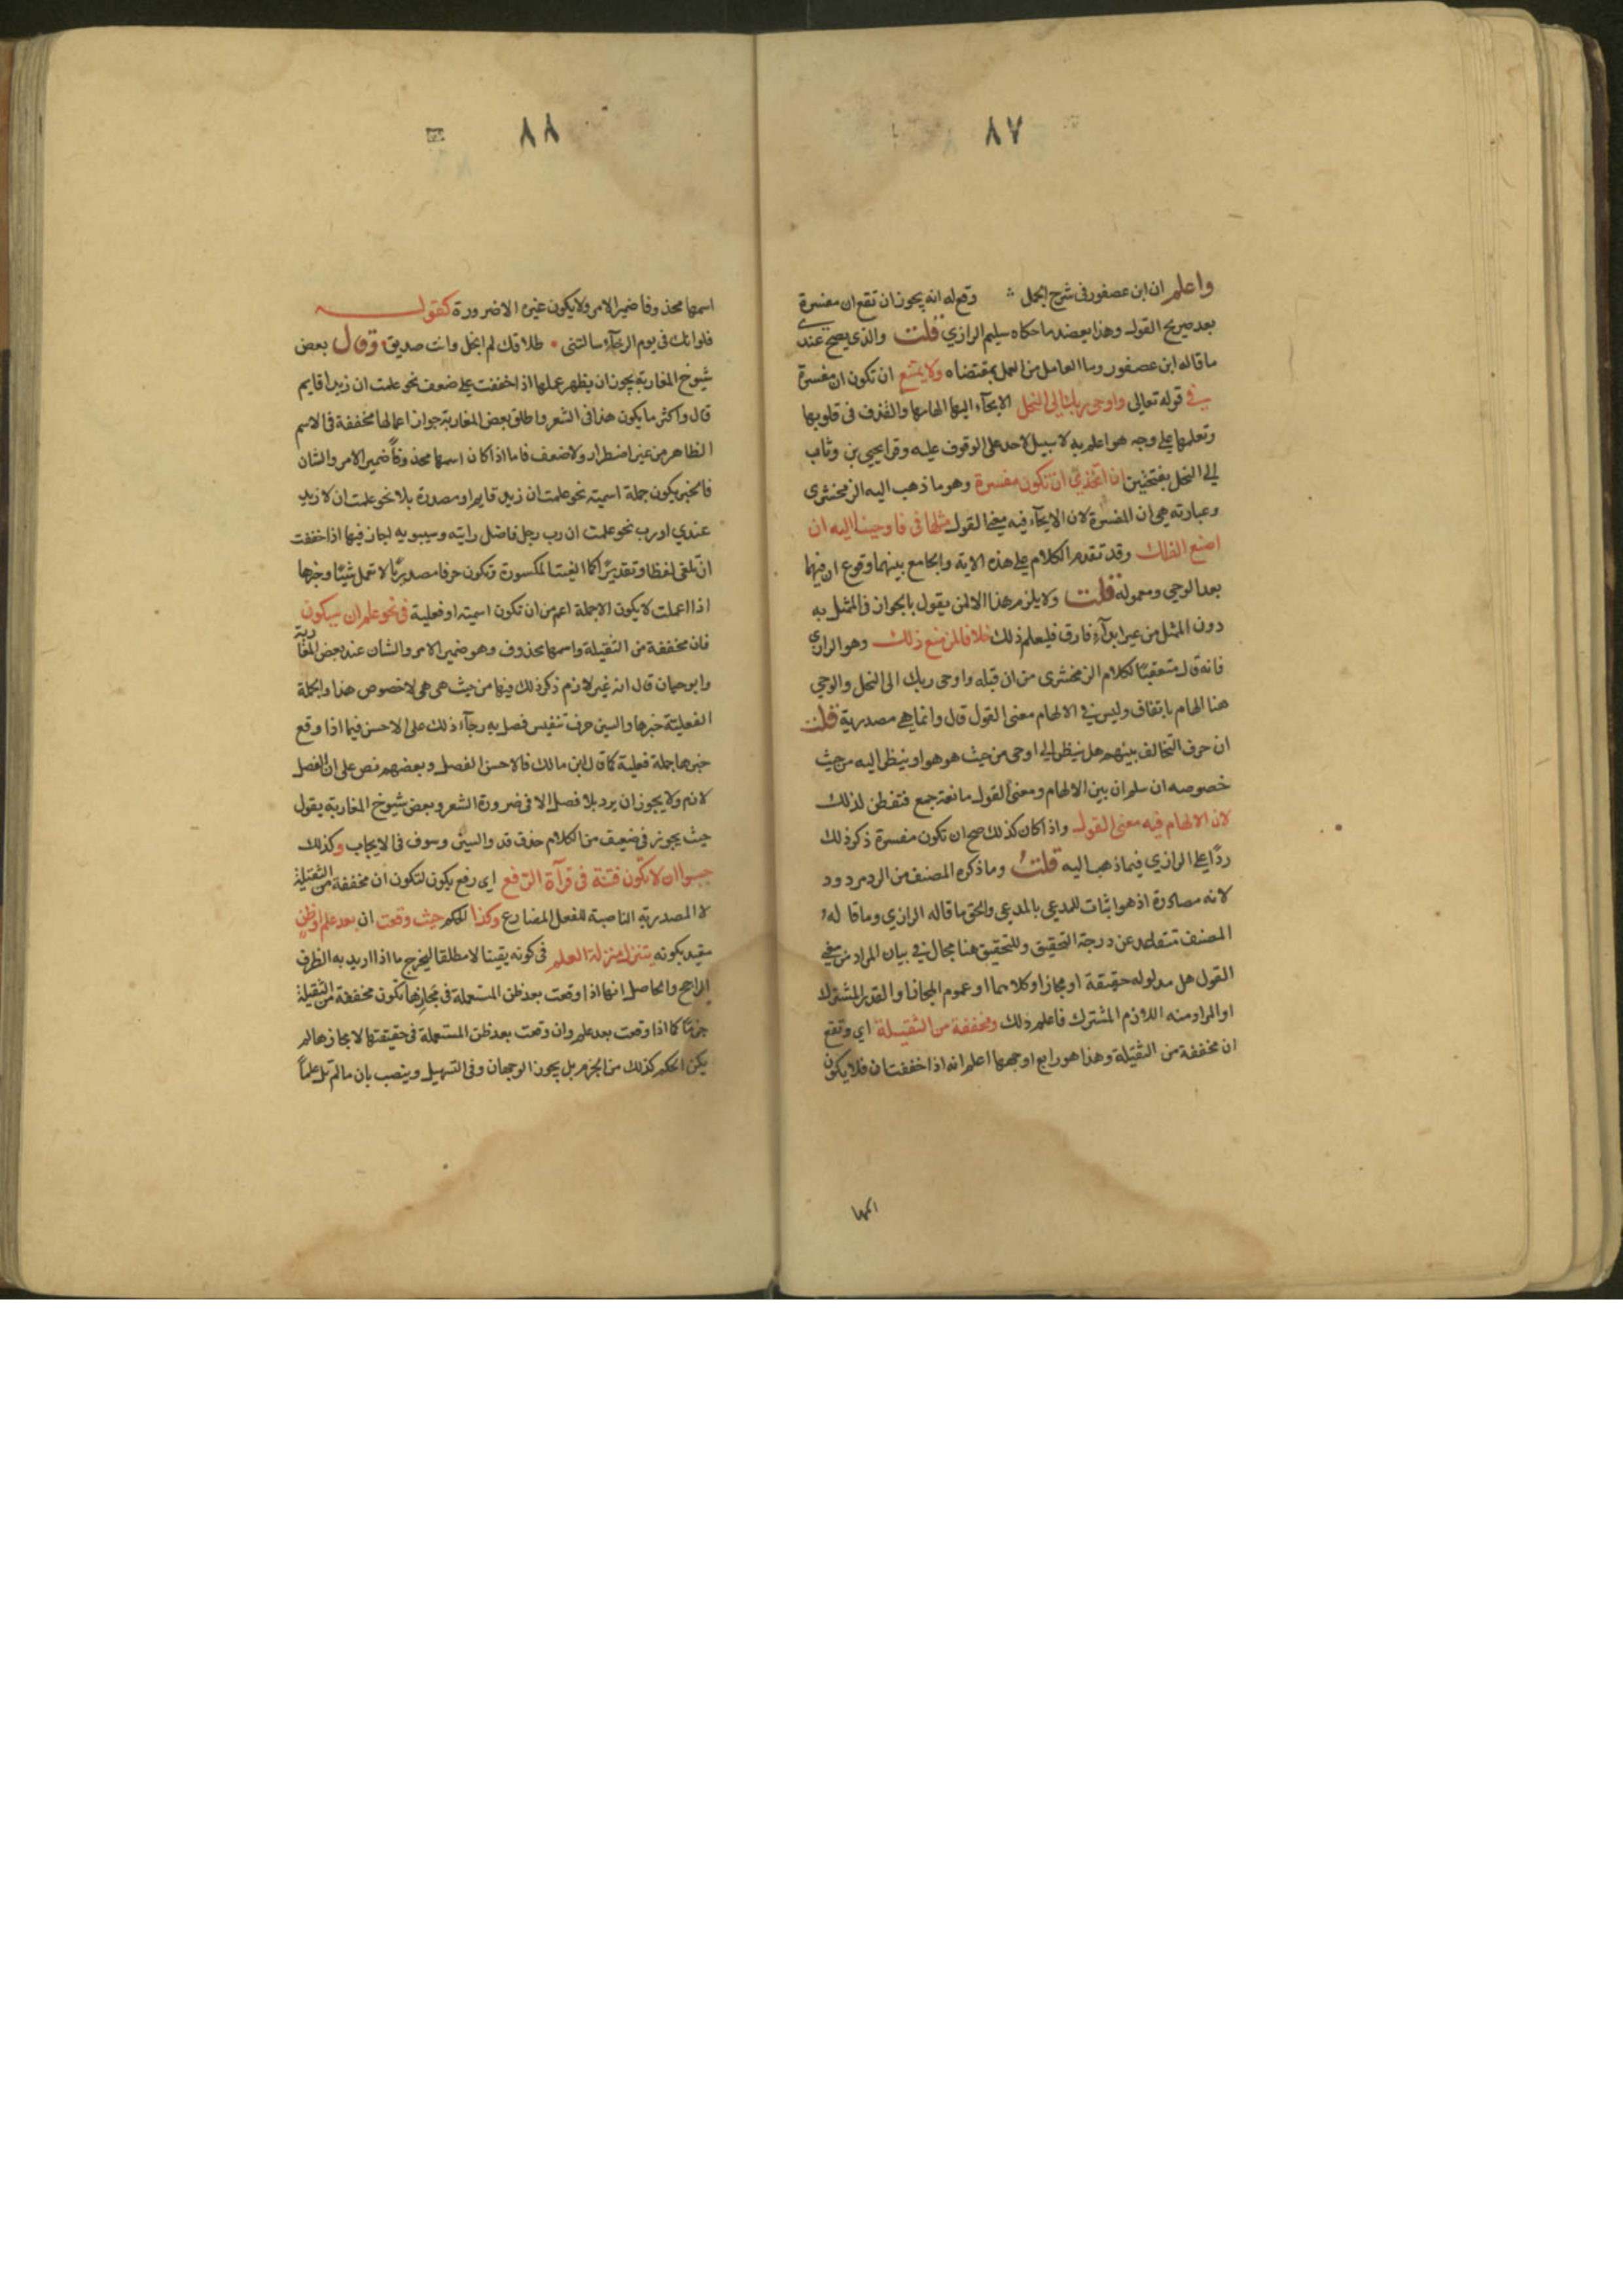 ٨٧
واعلم ان ابن عصفور فى شرح الجمل وقع له انه يجوز ان تقع ان مفسرة
بعد صريح القول وهذا يعضد ما حكاه سليم الرازي قلت والذى يصح عندى
ما قاله ابن عصفور وما العامل من العمل بمقتضاه ولا يمتنع ان تكون ان مفسرة
في قوله تعالى واوحى ربك الى النحل الايحآء اليها الهامها والقذف فى قلوبها
وتعلمها على وجه هو اعلم به لا سبيل لاحد على الوقوف عليه وقرا يحيى بن وثاب
الى النحل بفتحتين ان اتخذي ان تكون مفسرة وهو ما ذهب اليه الزمخشرى
وعبارته هي ان المفسرة لان الايحآء فيه معنى القول مثلها فى فاوحينا اليه ان
اصنع الفلك وقد تقدم الكلام على هذه الاية والجامع بينهما وقوع ان فيهما
بعد الوحي ومعموله قلت ولا يلزم هذا الا لمن يقول بالجواز فى الممثل به
دون الممثل من غير ابدآء فارق فليعلم ذلك خلافا لمن منع ذلك وهو الرازي
فانه قال متعقبًا لكلام الزمخشرى من ان قبله واوحى ربك الى النحل والوحي
هنا الهام باتفاق وليس في الالهام معنى القول قال وانما هي مصدرية قلت
ان حرف التخالف بينهم هل ينظر الى اوحى من حيث هو هو او ينظر اليه من حيث
خصوصه ان سلم ان بين الالهام ومعنى القول مانعة جمع فتفطن لذلك
لان الالهام فيه معنى القول واذا كان كذلك صح ان تكون مفسرة ذكر ذلك
ردًا على الرازي فيما ذهب اليه قلت وما ذكره المصنف من الرد مردود
لانه مصادرة اذ هو اثبات للمدعى بالمدعى والحق ما قاله الرازي وما قاله
المصنف متقاعد عن درجة التحقيق وللتحقيق هنا مجال في بيان المراد من معنى
القول هل مدلوله حقيقة او مجاز او كلاهما او عموم المجاز او القدر المشترك
او المراد منه اللازم المشترك فاعلم ذلك ومخففة من الثقيلة اي وتقع
ان مخففة من الثقيلة وهذا هو رابع اوجهها اعلم انه اذا خففت ان فلا يكون
اسمها
٨٨
اسمها محذوفا ضمير الامر ولا يكون غيره الا ضرورة كقولــه
فلو انك فى يوم الرخآء سالتنى • طلاقك لم ابخل وانت صديق وقال بعض
شيوخ المغاربة يجوز ان يظهر عملها اذا خففت على ضعف نحو علمت ان زيدا قايم
قال واكثر ما يكون هذا فى الشعر واطلق بعض المغاربة جواز اعمالها مخففة فى الاسم
الظاهر من غير اضطرار ولا ضعف فاما اذا كان اسمها محذوفًا ضمير الامر والشان
فالخبر يكون جملة اسمية نحو علمت ان زيد قايم او مصدرة بلا نحو علمت ان لا زيد
عندي او رب نحو علمت ان رب رجل فاضل رايته وسيبويه اجاز فيها اذا خففت
ان تلغى لفظا وتقديرًا كما الغيت المكسورة وتكون حرفا مصدريًا لا تعمل شيئًا وخبرها
اذا اعملت لا يكون الا جملة اعم من ان تكون اسمية او فعلية فى نحو علم ان سيكون
فان مخففة من الثقيلة واسمها محذوف وهو ضمير الامر والشان عند بعض المغاربة
وابو حيان قال انه غير لازم ذكر ذلك فيها من حيث هى هى لا خصوص هذا والجملة
الفعلية خبرها والسين حرف تنفيس فصل به رجآء ذلك على الاحسن فيما اذا وقع
خبرها جملة فعلية كما قال ابن مالك فالاحسن الفصل وبعضهم نص على ان الفصل
لازم ولا يجوز ان يرد بلا فصل الا فى ضرورة الشعر وبعض شيوخ المغاربة يقول
حيث يجوز فى ضعيف من الكلام حذف قد والسين وسوف فى الايجاب وكذلك
حسبوا ان لا تكون فتنة فى قرآة الرفع اي رفع يكون لتكون ان مخففة من الثقيلة
لا المصدرية الناصبة للفعل المضارع وكذا الحكم حيث وقعت ان بعد علم او ظن
مقيد بكونه يتنزل منزلة العلم فى كونه يقينا لا مطلقا ليخرج ما اذا اريد به الطرف
الراجح والحاصل انها اذا وقعت بعد ظن المستعملة فى مجازها تكون مخففة من الثقيلة
جزمًا كما اذا وقعت بعد علم وان وقعت بعد ظن المستعملة فى حقيقتها لا مجازها لم
يكن الحكم كذلك من الجزم بل يجوز الوجهان وفى التسهيل وينصب بان ما لم تل علمًا